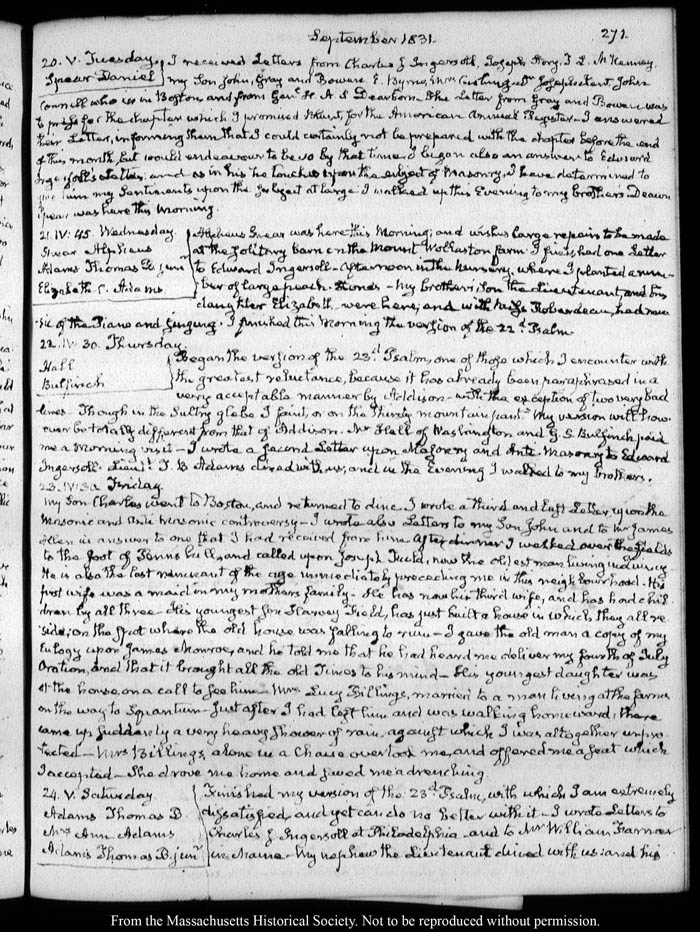 September 1831.
271.
20. V. Tuesday. I received Letters from Charles J. Ingersoll, Joseph Story, T. L. McKenney,
Spear Daniel my Son John, Gray and Bowen E. Byrne, Joseph John
Connell who is in Boston and from Genl. H. A. S. Dearborn. The Letter from Gray and Bowen was
for the chapter which I promised for the American Annual Register. I answered
their Letter, informing them that I could certainly not be prepared with the chapter before the end
of this month but would endeavour to be so by that time. I began also an answer to Edward
Ingersoll's Letter; and as in his he touches upon the subject of Masonry, I have determined to
give him my Sentiments upon the subject at large. I walked up this Evening to my brother's. Deacon
Spear was here this morning.
21. IV:45. Wednesday. Alpheus Spear was here this Morning; and wishes large repairs to be made
Spear Alpheus at the solitary barn on the Mount Wollaston farm. I finished one Letter
Adams Thomas B. junr to Edward Ingersoll. Afternoon in the Nursery, where I planted a num-
Elizabeth C. Adams ber of large peach Stones. My brother's Son the Lieutenant, and his
daughter Elizabeth were here, and with Miss Roberdeau, had mu-
sic of the Piano and Singing. I finished this Morning the version of the 22d. Psalm.
22. IV:30. Thursday.
Hall Began the version of the 23d. Psalm, one of those which I encounter with
Bulfinch the greatest reluctance, because it has already been paraphrased in a
very acceptable manner by Addison with the exception of two very bad
lines. Though in the Sultry glebe I faint, or on the thirsty mountain pant. My version will how-
ever be totally different from that of Addison. Mr Hall of Washington and G. S. Bulfinch paid
me a Morning visit. I wrote a second Letter upon Masonry and Anti-Masonry to Edward
Ingersoll. Lieut. T. B Adams dined with us, and in the Evening I walked to my brother's.
23. IV:30. Friday.
My Son Charles went to Boston, and returned to dine. I wrote a third and last Letter upon the
Masonic and Anti Masonic controversy. I wrote also Letters to my Son John and to Mr James
in answer to one that I had received from him. After dinner I walked over the fields
to the foot of Penns hill, and called upon Joseph Field, now the oldest man living in Quincy.
He is also the last remnant of the age immediately preceeding me in this neighbourhood. His
first wife was a maid in my mother's family. He has now his third wife, and has had chil-
dren by all three. His youngest Son Harvey Field, has just built a house in which they all re-
side; on the Spot where the old house was falling to ruin. I gave the old man a copy of my
Eulogy upon James Monroe, and he told me that he had heard me deliver my fourth of July
Oration, and that it brought all the old Times to his mind. His youngest daughter was
at the house, on a call to see him. Mrs Lucy Billings, married to a man living at the farms
on the way to Squantum. Just after I had left him and was walking homeward, there
came up suddenly a very heavy shower of rain, against which I was altogether unpro-
tected. Mrs Billings, alone in a Chaise overtook me, and offered me a seat which
I accepted. She drove me home and saved me a drenching.
24. V. Saturday. Finished my version of the 23d. Psalm, with which I am extremely
Adams Thomas B dissatisfied, and yet can do no better with it. I wrote Letters to
Mrs Ann Adams Charles J. Ingersoll at Philadelphia and to Mr William Farmer
Adams Thomas B. junr in Maine. My nephew the Lieutenant dined with us: and his
From the Massachusetts Historical Society. Not to be reproduced without permission.